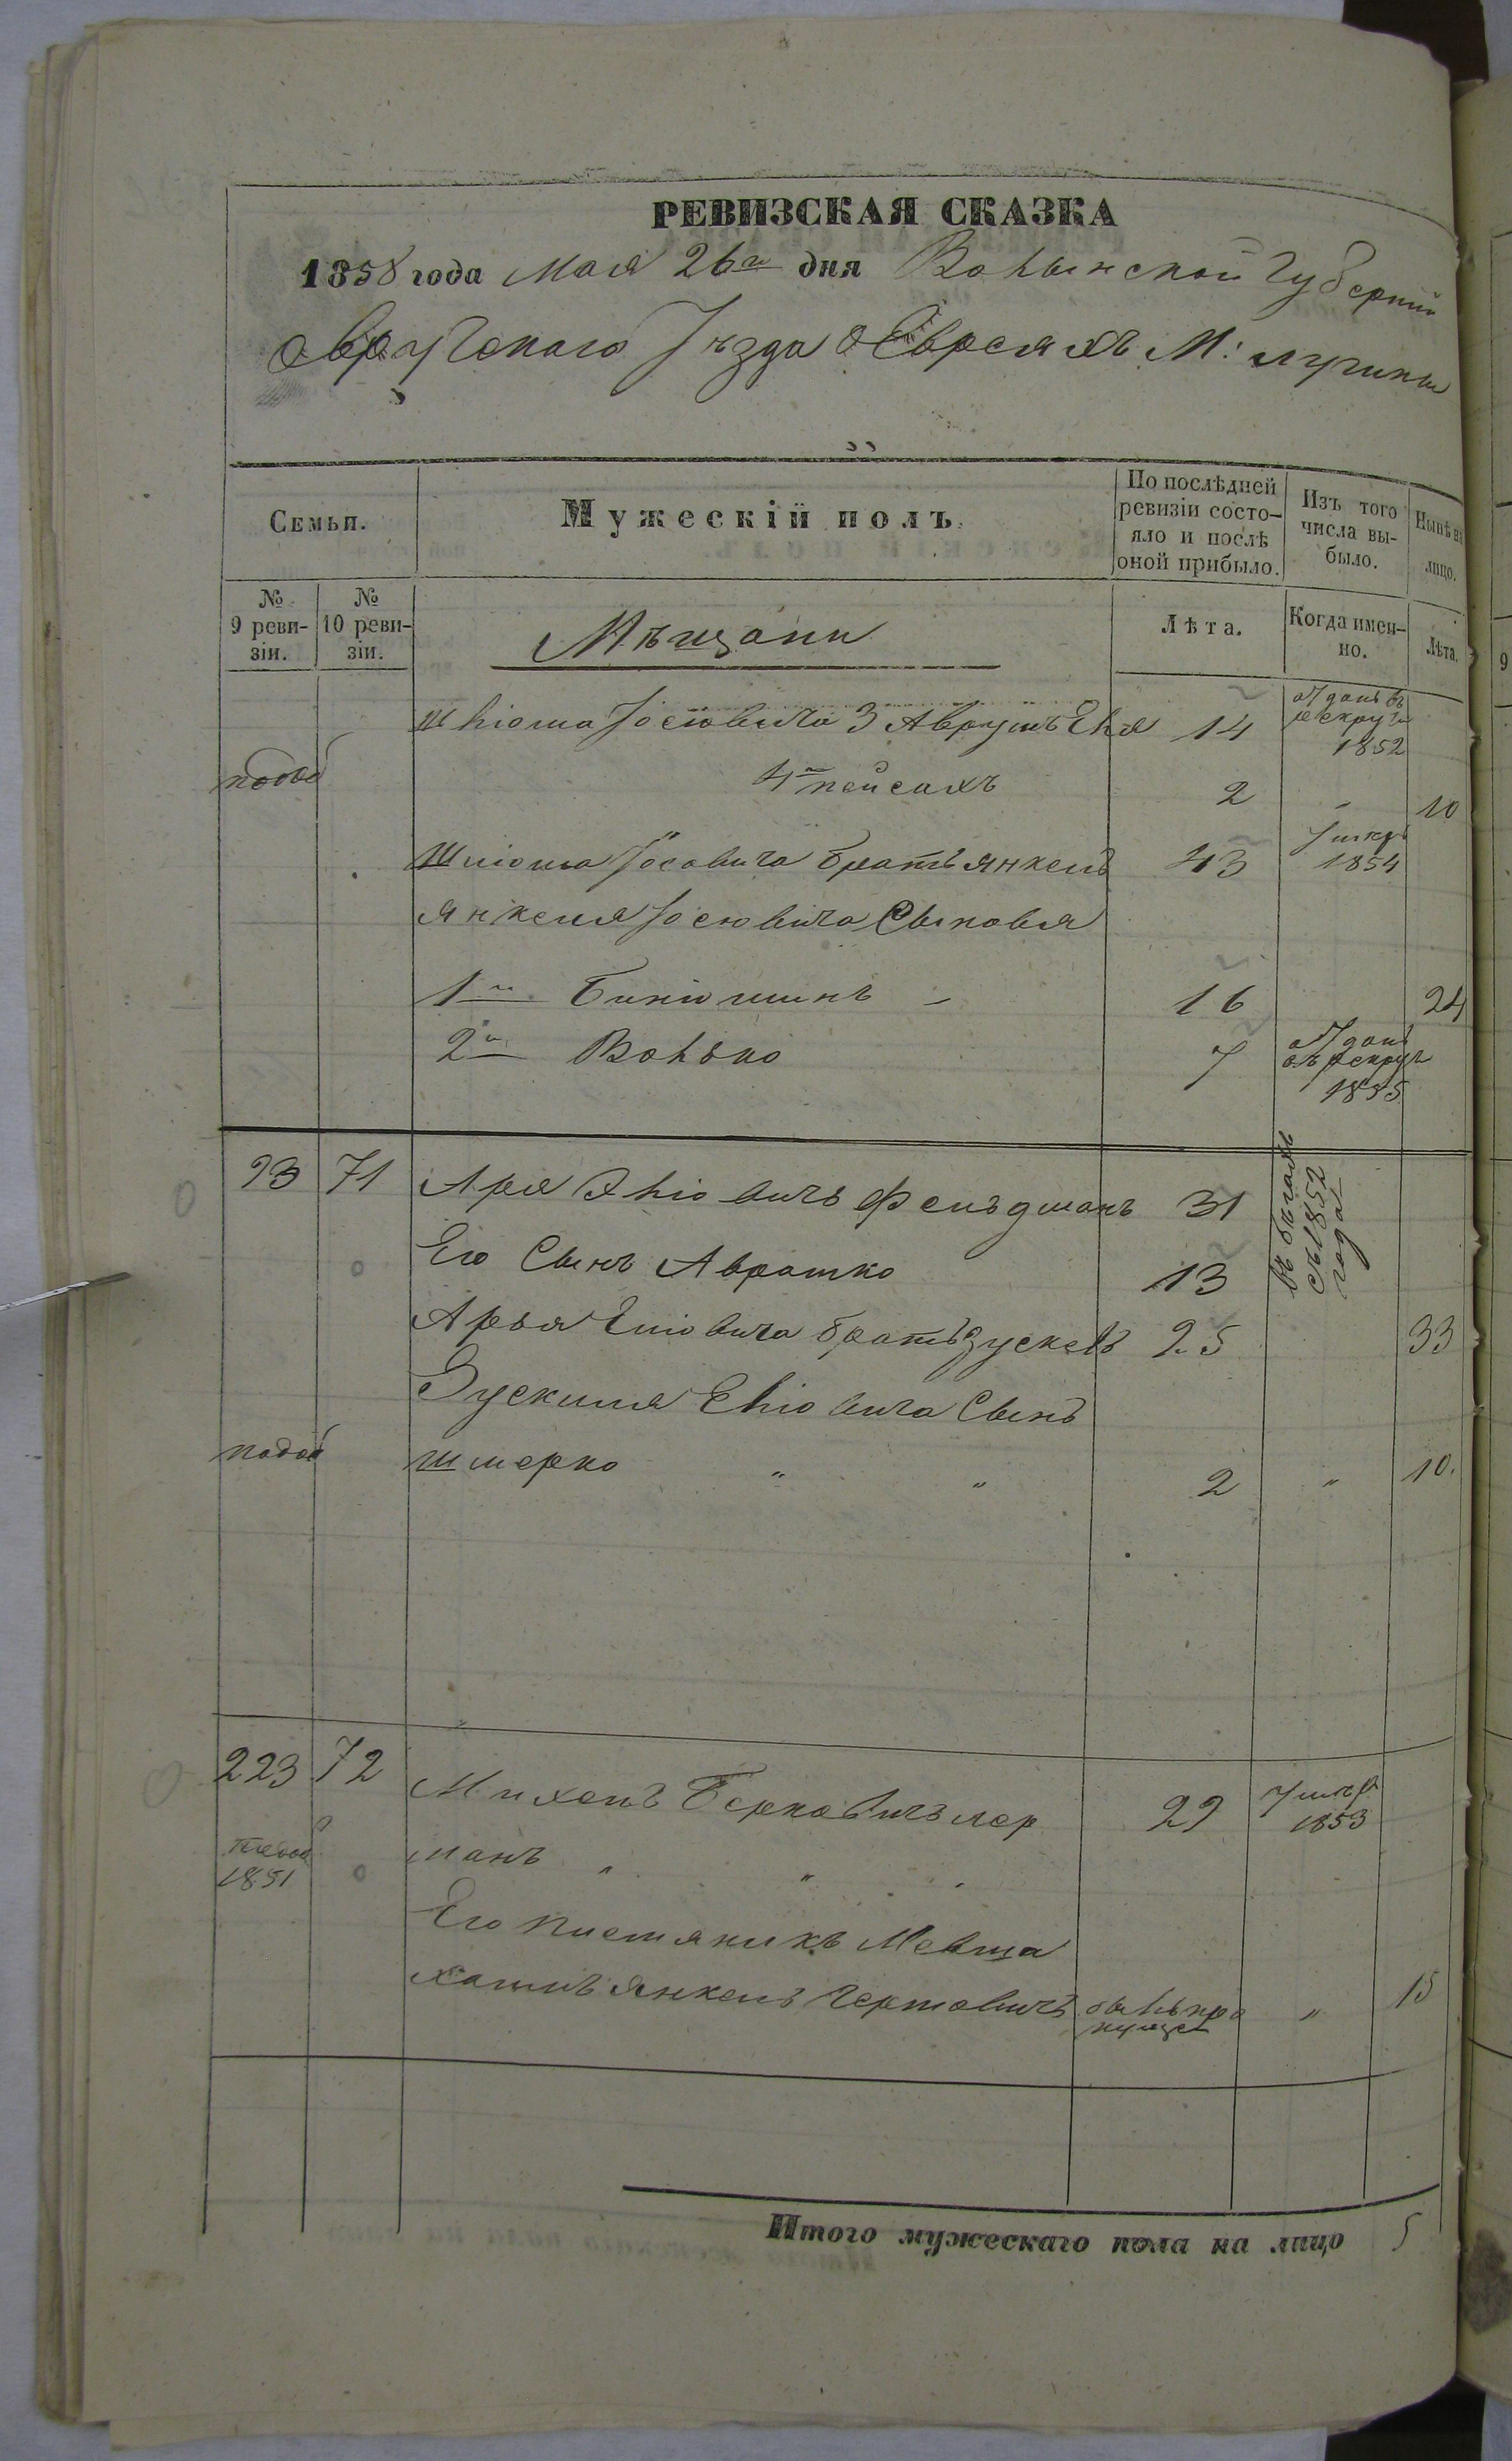 РЕВИЗСКАЯ СКАЗКА
1858 года Мая 26го дня Волынской Губерніи
Овручскаго Уѣзда о Евреяхъ М: Лугинъ
Семьи.
Мужескій полъ.
По послѣдней ревизіи состо-
яло и послѣ
оной прибыло.
Изъ того
числа вы-
было.
Нынѣ на
лицо.
№ 9 реви-
зіи.
№ 10 реви-
зіи.
Мѣщани
Лѣта.
Когда имен-
но.
Лѣта.
Шлiома Іосiовича 3 Аврумъ Еля 14 отданъ въ рекруты 1852
4й Пейсахъ 2 „ 10
Шлiома Іосовича братъ Янкель 43 умеръ 1854
Янкеля Іосювича Сыновья
1й Бинiоминъ - 16 24
2й Волько 7 отданъ въ рекрут 1855
93 71 Аря Элiовичъ Фельдманъ 31 въ бѣгахъ съ 1852 года
Его Сынъ Аврамко 13
Арья Елiовича братъ Зускель 25 33
Зускиля Елiовича Сынъ
Шмерко „ „ 2 „ 10.
223 72 Михель Берковичъ Лер 29 умеръ 1853
1851 манъ „ „ „
Его племяникъ Мевша
Хаимъ Янкель 15
Итого мужескаго пола на лицо 5